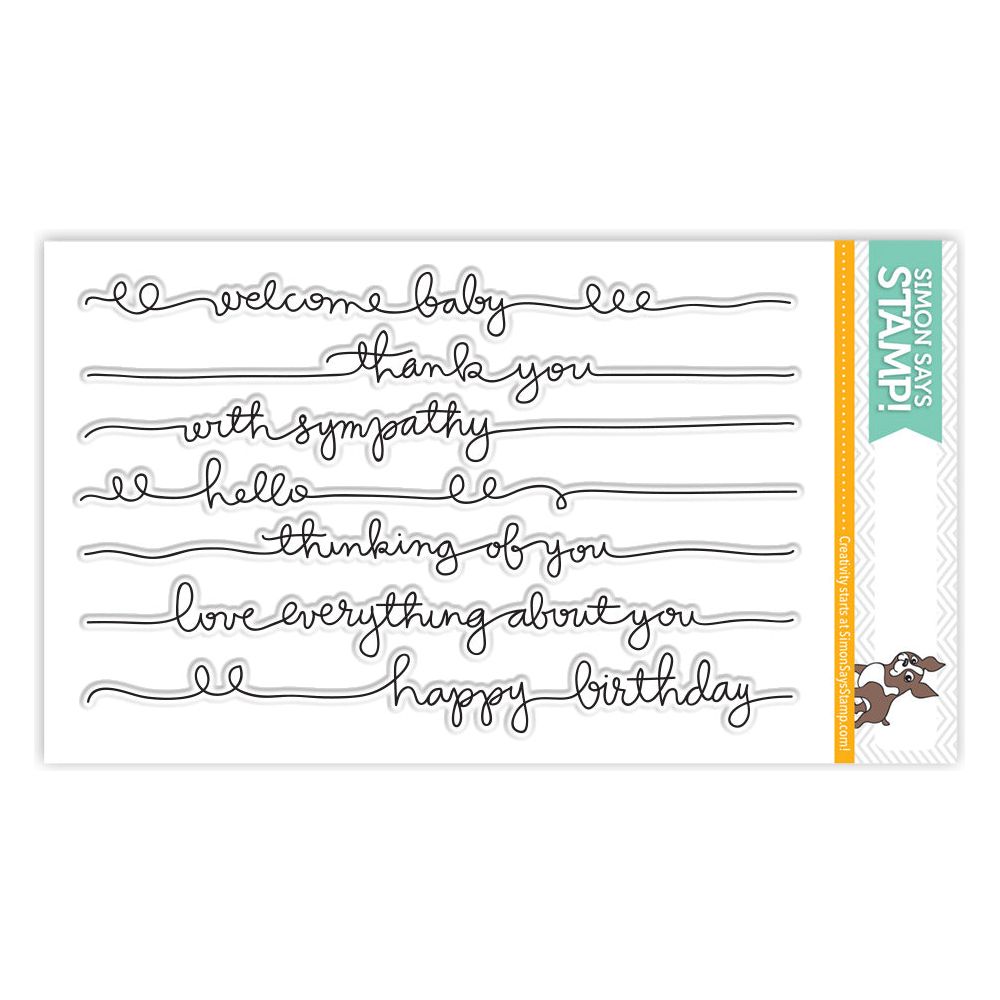 welcome baby
thank you
with sympathy
hello
thinking of you
love everything about you
happy birthday
SIMON SAYS
STAMP!
Creativity starts at SimonSaysStamp.com!